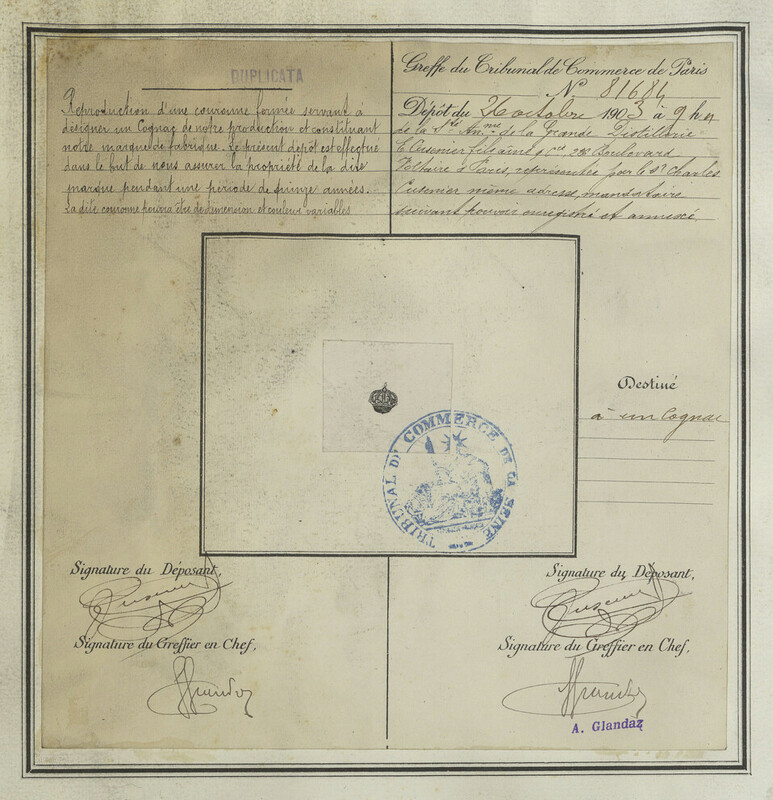 DUPLICATA
Reproduction d'une couronne formée servant à
désigner un Cognac de notre production et constituant
notre marque de fabrique. Le présent dépôt est effectué
dans le but de nous assurer la propriété de la dite
marque pendant une période de quinze années.
La dite couronne pourra être de dimension et couleur variables
Greffe du Tribunal de Commerce de Paris
N° 81684
Dépôt du 26 octobre 1903 à 9 h
de la Sté Anme de la Grande Distillerie
E. Cusenier fils aîné & Cie 226 Boulevard
Voltaire à Paris, représentée par le Sr Charles
Cusenier même adresse, mandataire
suivant pouvoir enregistré et annexé.
Destiné
à un Cognac
TRIBUNAL DE COMMERCE DE LA SEINE
Signature du Déposant,
Cusenier
Signature du Greffier en Chef,
Signature du Déposant,
Cusenier
Signature du Greffier en Chef,
A. Glandaz